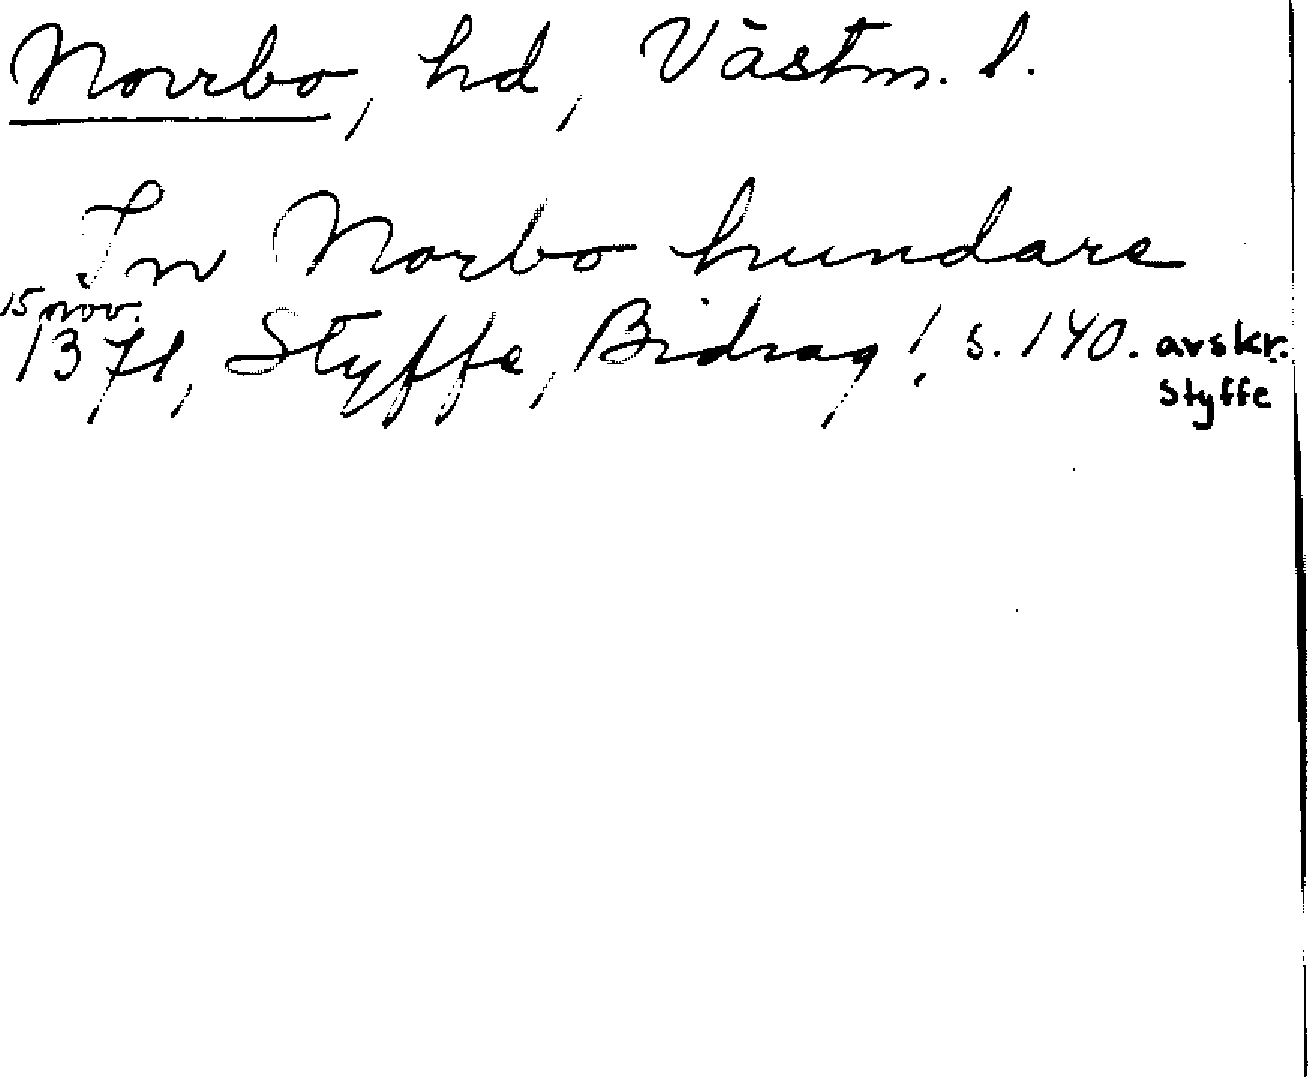 Norrbo, hd, Västm. l.
In Norbo hundare
15 nov.
1371, Styffe, Bidrag 1, s. 140. avskr.
Styffe